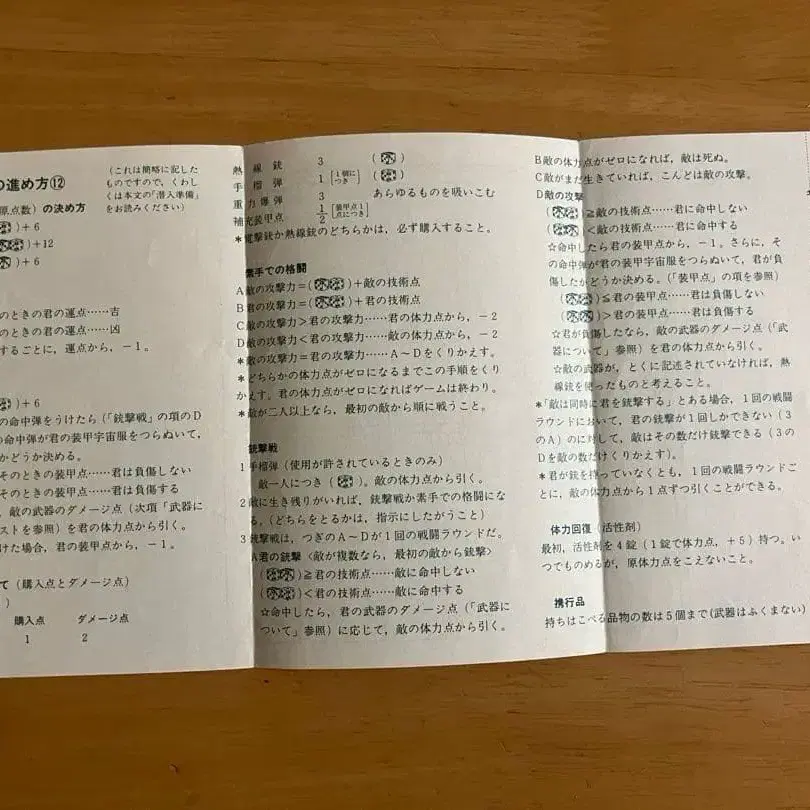 の進め方⑫
(これは簡略に記した
ものですので，くわし
くは本文の「潜入準備」
をお読みください)
原点数）の決め方
)＋6
)＋12
)＋6
のときの君の運点……吉
のときの君の運点……凶
することに，運点から，－1。
)＋6
の命中弾をうけたら（「銃撃戦」の項のD
の命中弾が君の装甲宇宙服をつらぬいて，
かどうか決める。
そのときの装甲点……君は負傷しない
そのときの装甲点……君は負傷する
，敵の武器のダメージ点（次項「武器に
ストを参照）を君の体力点から引く。
けた場合，君の装甲点から，－1。
て（購入点とダメージ点）
)
購入点 ダメージ点
1 2
熱線銃 3 ( )
手榴弾 1 [1個につき] ( )
重力爆弾 3 あらゆるものを吸いこむ
補充装甲点 1/2 [装甲点1点につき]
＊電撃銃か熱線銃のどちらかは，必ず購入すること。
素手での格闘
A敵の攻撃力＝( )＋敵の技術点
B君の攻撃力＝( )＋君の技術点
C敵の攻撃力＞君の攻撃力……君の体力点から，－2
D敵の攻撃力＜君の攻撃力……敵の体力点から，－2
＊敵の攻撃力＝君の攻撃力……A～Dをくりかえす。
＊どちらかの体力点がゼロになるまでこの手順をくり
かえす。君の体力点がゼロになればゲームは終わり。
＊敵が二人以上なら，最初の敵から順に戦うこと。
銃撃戦
1手榴弾（使用が許されているときのみ）
敵一人につき( )，敵の体力点から引く。
2敵に生き残りがいれば，銃撃戦か素手での格闘にな
る。（どちらをとるかは，指示にしたがうこと）
3銃撃戦は，つぎのA～Dが1回の戦闘ラウンドだ。
A君の銃撃〈敵が複数なら，最初の敵から銃撃〉
( )≧君の技術点……敵に命中しない
( )＜君の技術点……敵に命中する
☆命中したら，君の武器のダメージ点（「武器に
ついて」参照）に応じて，敵の体力点から引く。
B敵の体力点がゼロになれば，敵は死ぬ。
C敵がまだ生きていれば，こんどは敵の攻撃。
D敵の攻撃
( )≧敵の技術点……君に命中しない
( )＜敵の技術点……君に命中する
☆命中したら君の装甲点から，－1。さらに，そ
の命中弾が君の装甲宇宙服をつらぬいて，君が負
傷したかどうか決める。（「装甲点」の項を参照）
( )≦君の装甲点……君は負傷しない
( )＞君の装甲点……君は負傷する
☆君が負傷したなら，敵の武器のダメージ点（「武
器について」参照）を君の体力点から引く。
☆敵の武器が，とくに記述されていなければ，熱
線銃を使ったものと考えること。
＊「敵は同時に君を銃撃する」とある場合，1回の戦闘
ラウンドにおいて，君の銃撃が1回しかできない（3
のA）のに対して，敵はその数だけ銃撃できる（3の
Dを敵の数だけくりかえす）。
＊君が銃を持っていなくとも，1回の戦闘ラウンドご
とに，敵の体力点から1点ずつ引くことができる。
体力回復（活性剤）
最初，活性剤を4錠（1錠で体力点，＋6）持つ。い
つでものめるが，原体力点をこえないこと。
携行品
持ちはこべる品物の数は5個まで(武器はふくまない)